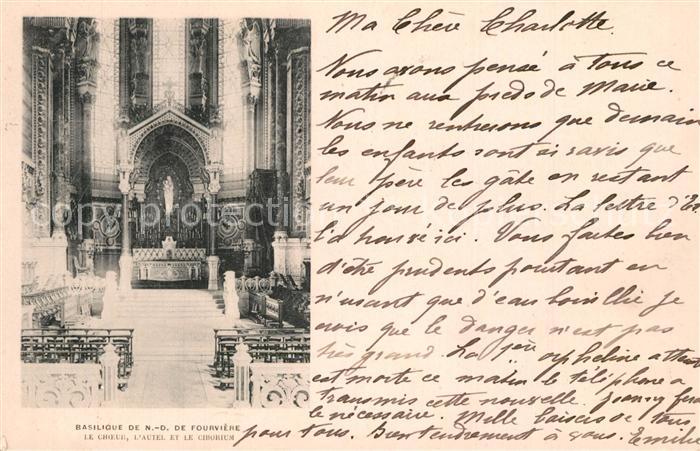 Ma Chère Charlotte.
Nous avons pensé à tous ce
matin aux pieds de Marie.
Nous ne rentrerons que demain
les enfants sont si ravis que
leur père les gâte en restant
un jour de plus. La lettre d'El
l'a trouvé ici. Vous faites bien
d'être prudents pourtant en
n'usant que d'eau bouillie je
crois que le danger n'est pas
très grand. La orpheline
est morte ce matin le téléphone a
transmis cette nouvelle.
le nécessaire. Mille baisers de tous
pour tous. bien tendrement à vous. Emilie
BASILIQUE DE N.-D. DE FOURVIÈRE
LE CHŒUR, L'AUTEL ET LE CIBORIUM